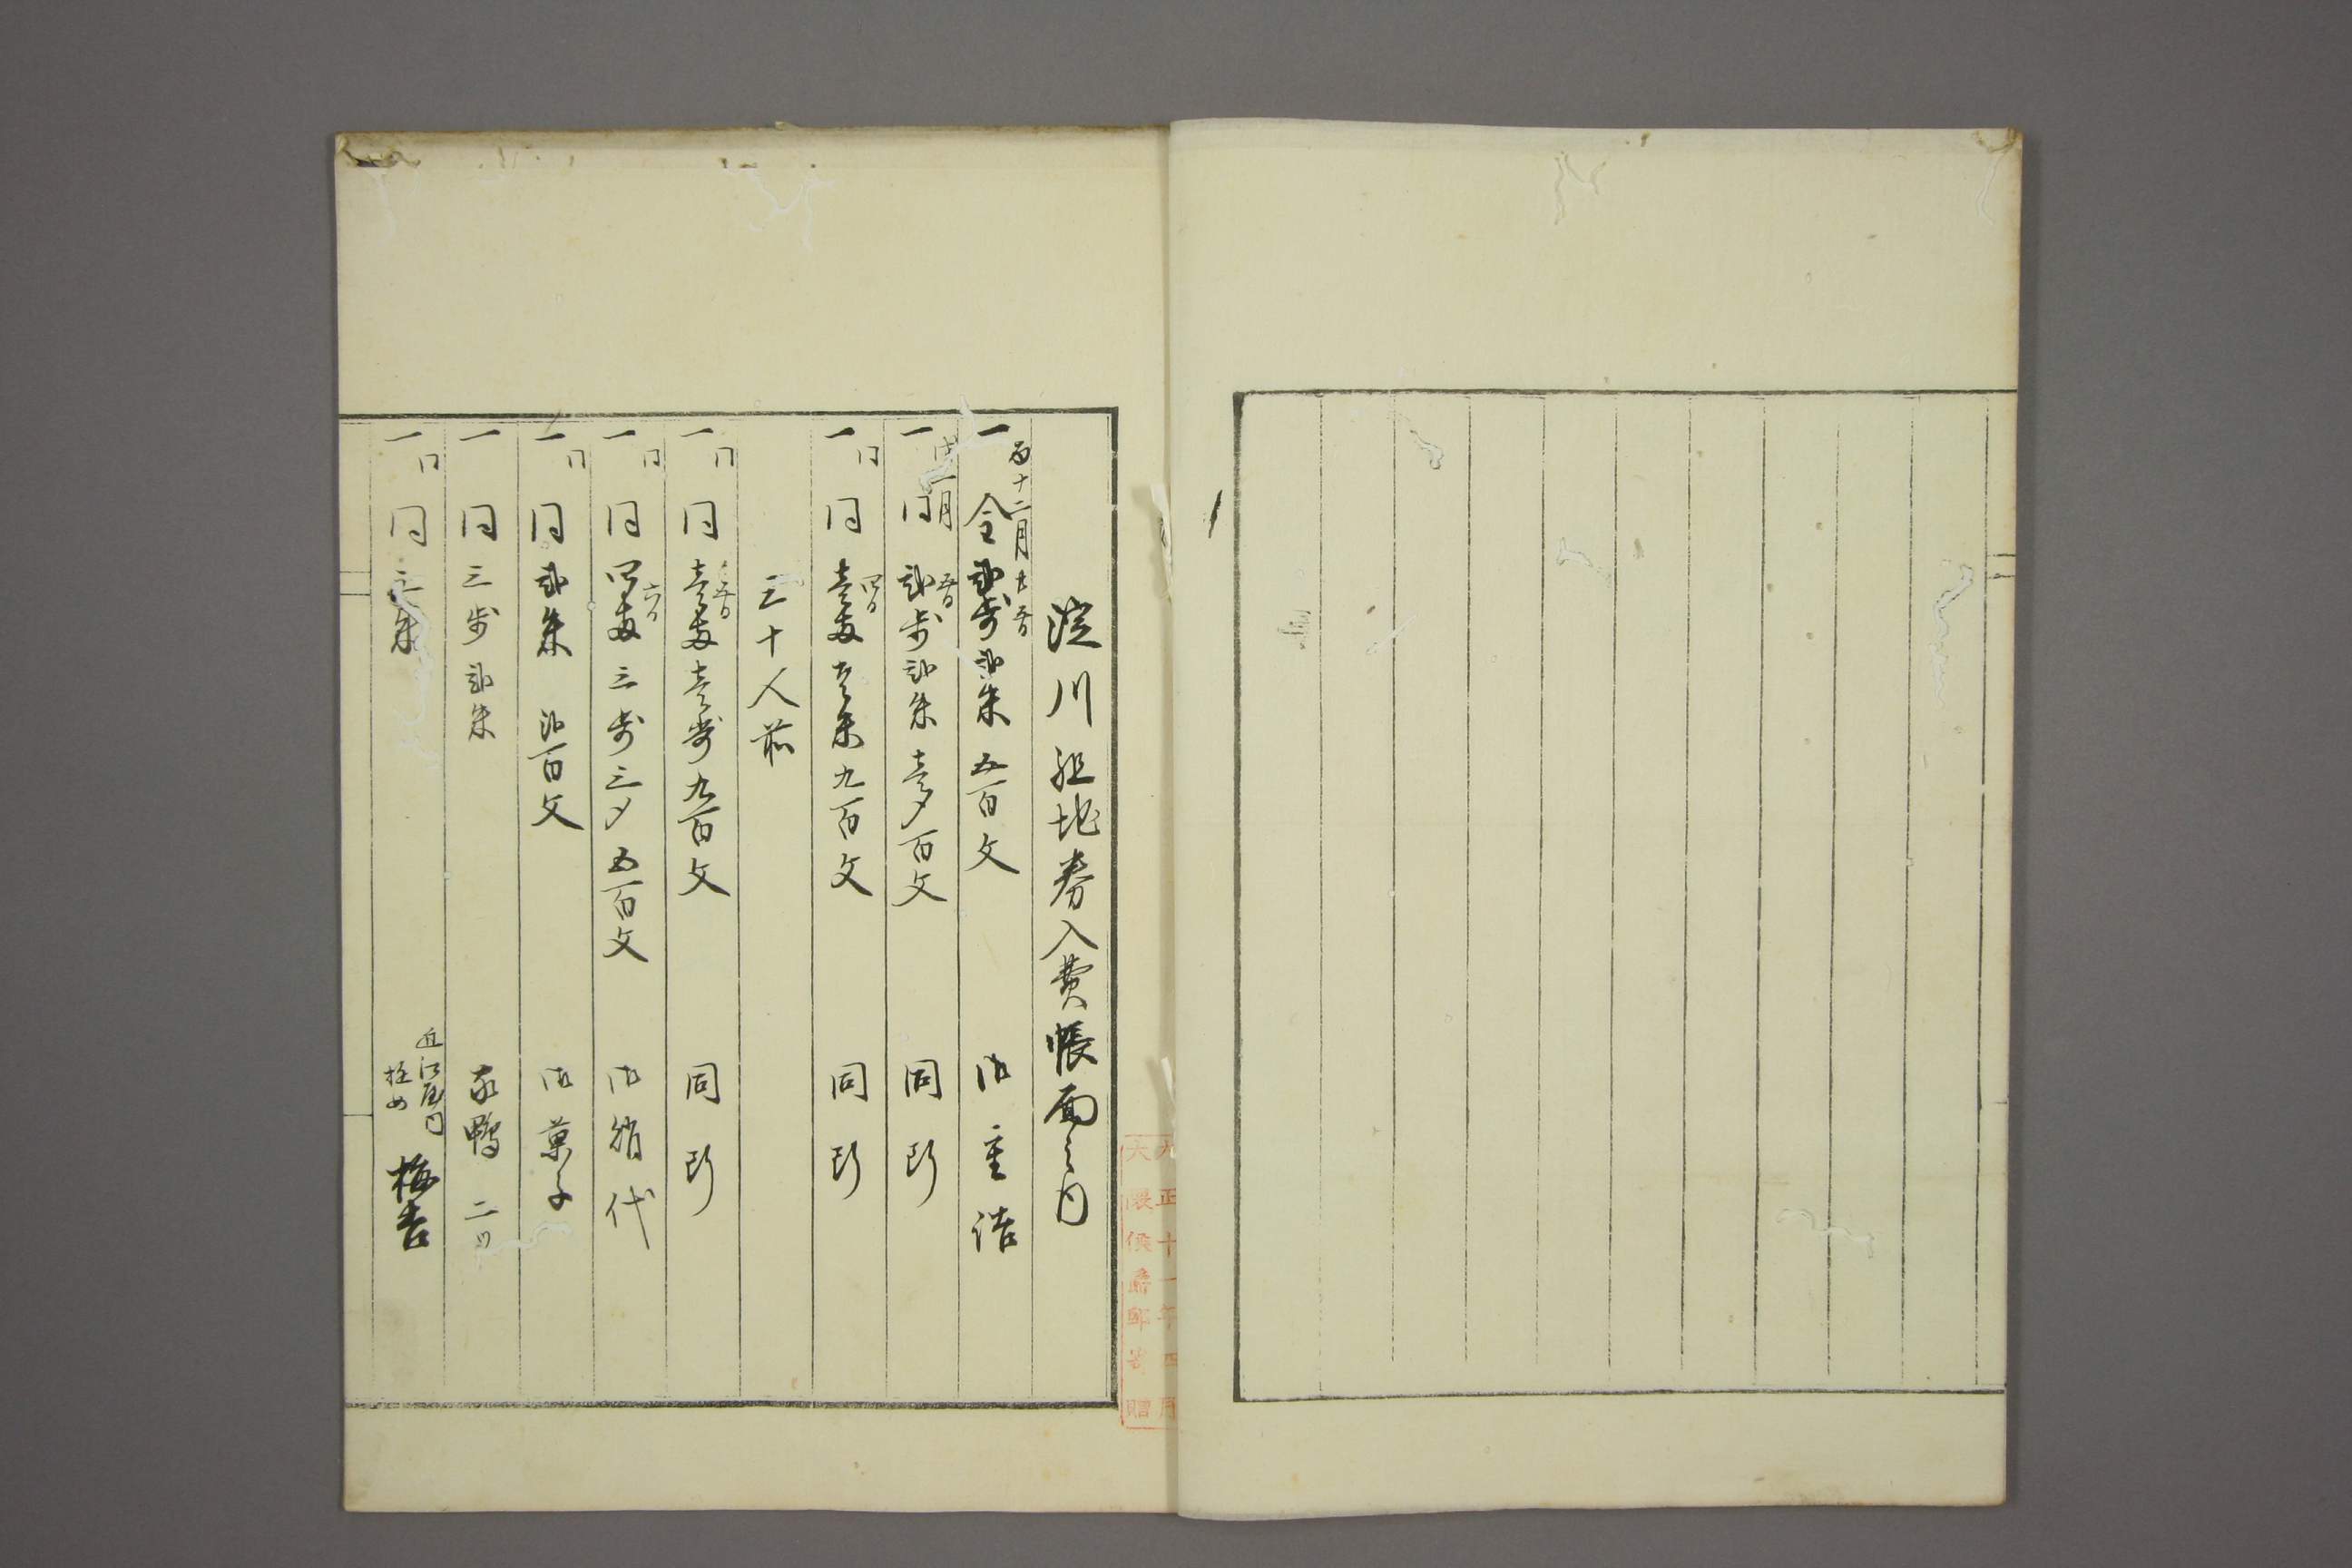 淀川組地券入費帳面之内
酉十二月廿五日
一 金弐歩弐朱五百文 御重詰
戌一月
五日
一 同弐歩弐朱壱〆百文 同断
同 四日
一 同壱両壱朱九百文 同断
三十人前
同 五日
一 同壱両壱歩九百文 同断
同 六日
一 同四両三歩三〆五百文 御肴代
同
一 同弐朱弐百文 御菓子
一 同三歩弐朱 家鴨 二ツ
同
一 同三朱 近江屋 梅吉
大正十一年四月
大隈侯爵邸寄贈